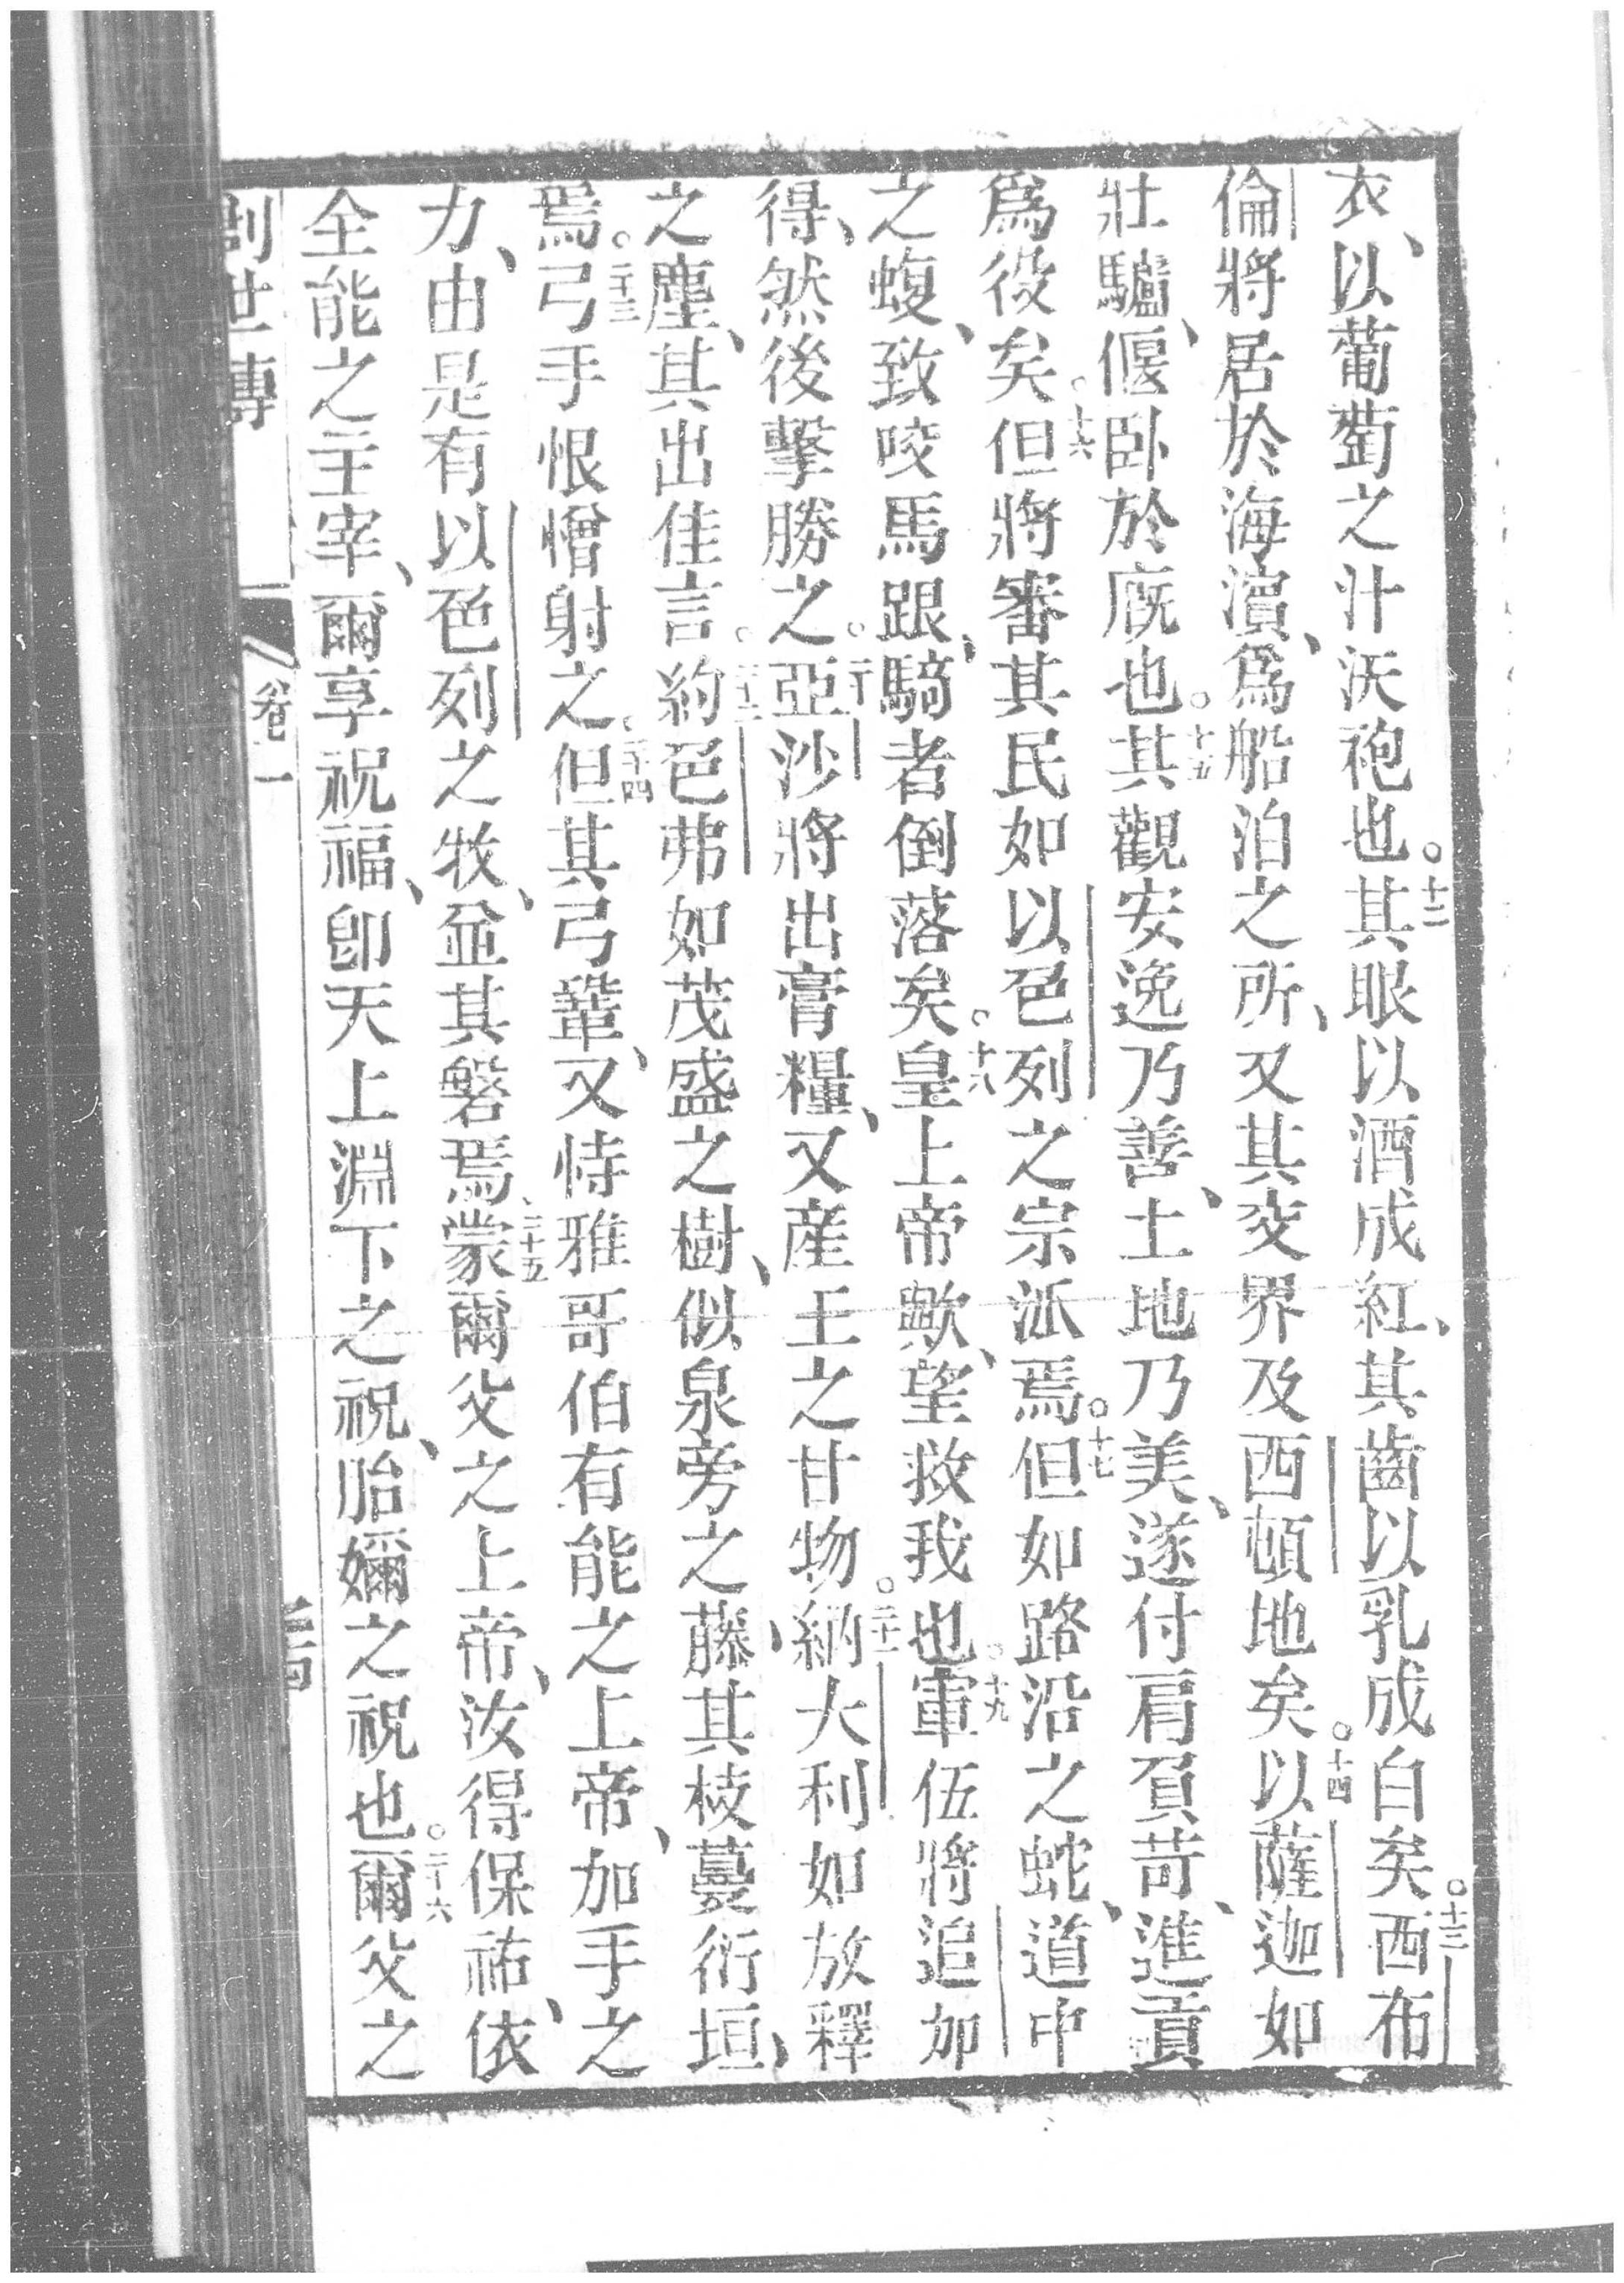 衣、以葡萄之汁沃袍也。十二其眼以酒成紅、其齒以乳成白矣。十三西布
倫將居於海濵、爲船泊之所、又其交界及西頓地矣。十四以薩迦如
壯驢、偃卧於廐也。十五其觀安逸乃善、土地乃美、遂付肩負苛、進貢
爲役矣。十六但將審其民如以色列之宗派焉。十七但如路沿之蛇、道中
之蝮、致咬馬跟、騎者倒落矣。十八皇上帝歟、望救我也。十九軍伍將追加
得、然後擊勝之。二十亞沙將出膏糧、又産王之甘物。二十一納大利如放釋
之塵、其出佳言。二十二約色弗如茂盛之樹、似泉旁之藤、其枝蔓衍垣、
焉。二十三弓手恨憎射之。二十四但其弓鞏、又恃雅哥伯有能之上帝、加手之
力、由是有以色列之牧、並其磐焉、二十五蒙爾父之上帝、汝得保祐、依
全能之主宰、爾享祝福、卽天上淵下之祝、胎嬭之祝也。二十六爾父之
創世傳 卷一